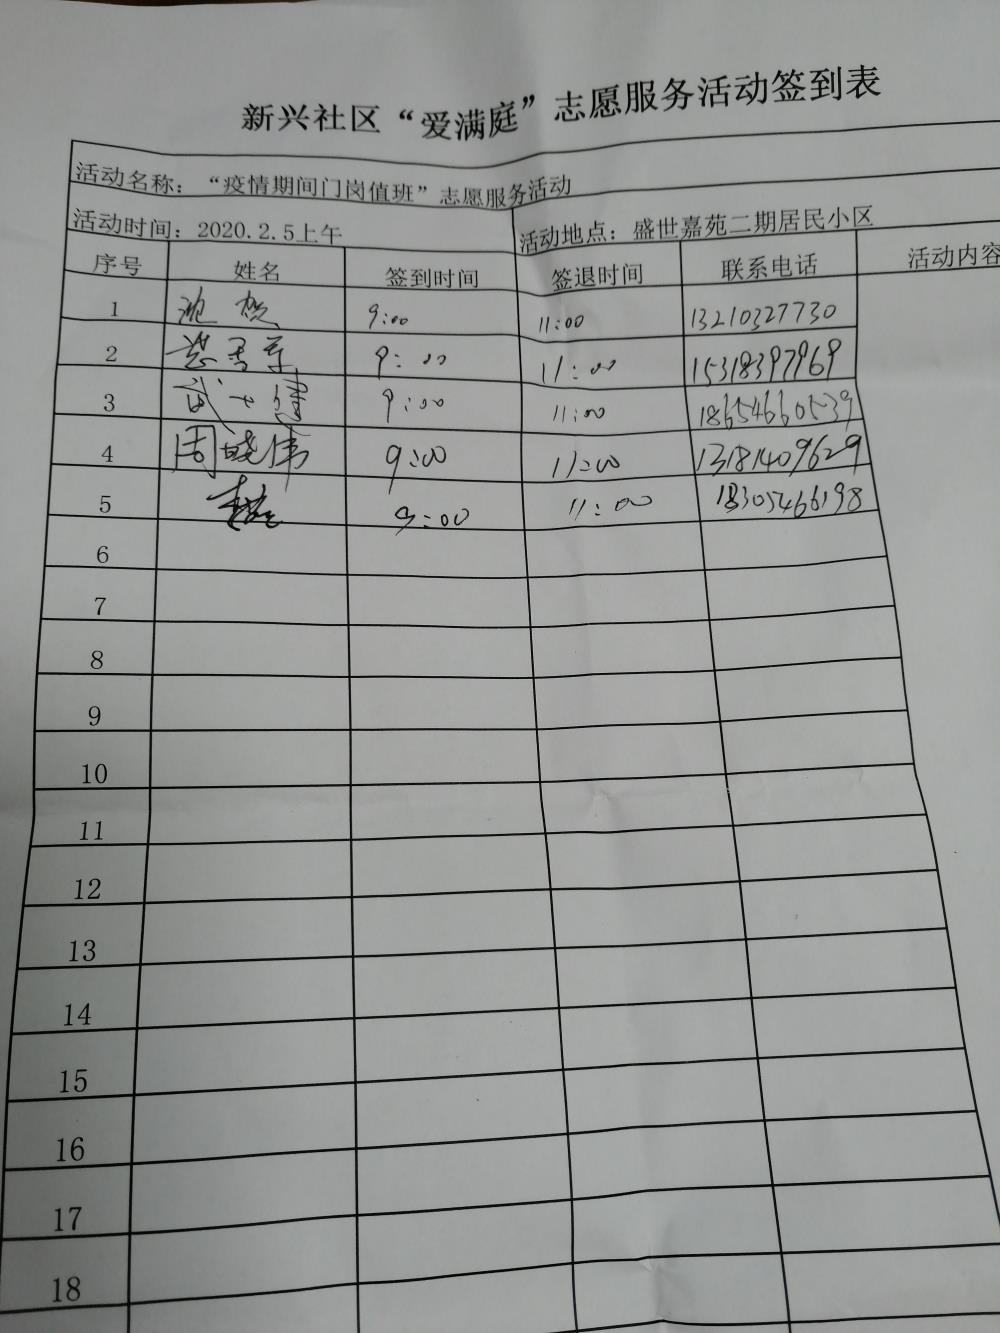 新兴社区“爱满庭”志愿服务活动签到表
活动名称：“疫情期间门岗值班”志愿服务活动
活动时间：2020.2.5上午 活动地点：盛世嘉苑二期居民小区
序号 姓名 签到时间 签退时间 联系电话 活动内容
1 9:00 11:00 13210327730
2 9:00 11:00 15318397969
3 9:00 11:00 18654660539
4 周晓伟 9:00 11:00 13181409629
5 9:00 11:00 18305466198
6
7
8
9
10
11
12
13
14
15
16
17
18